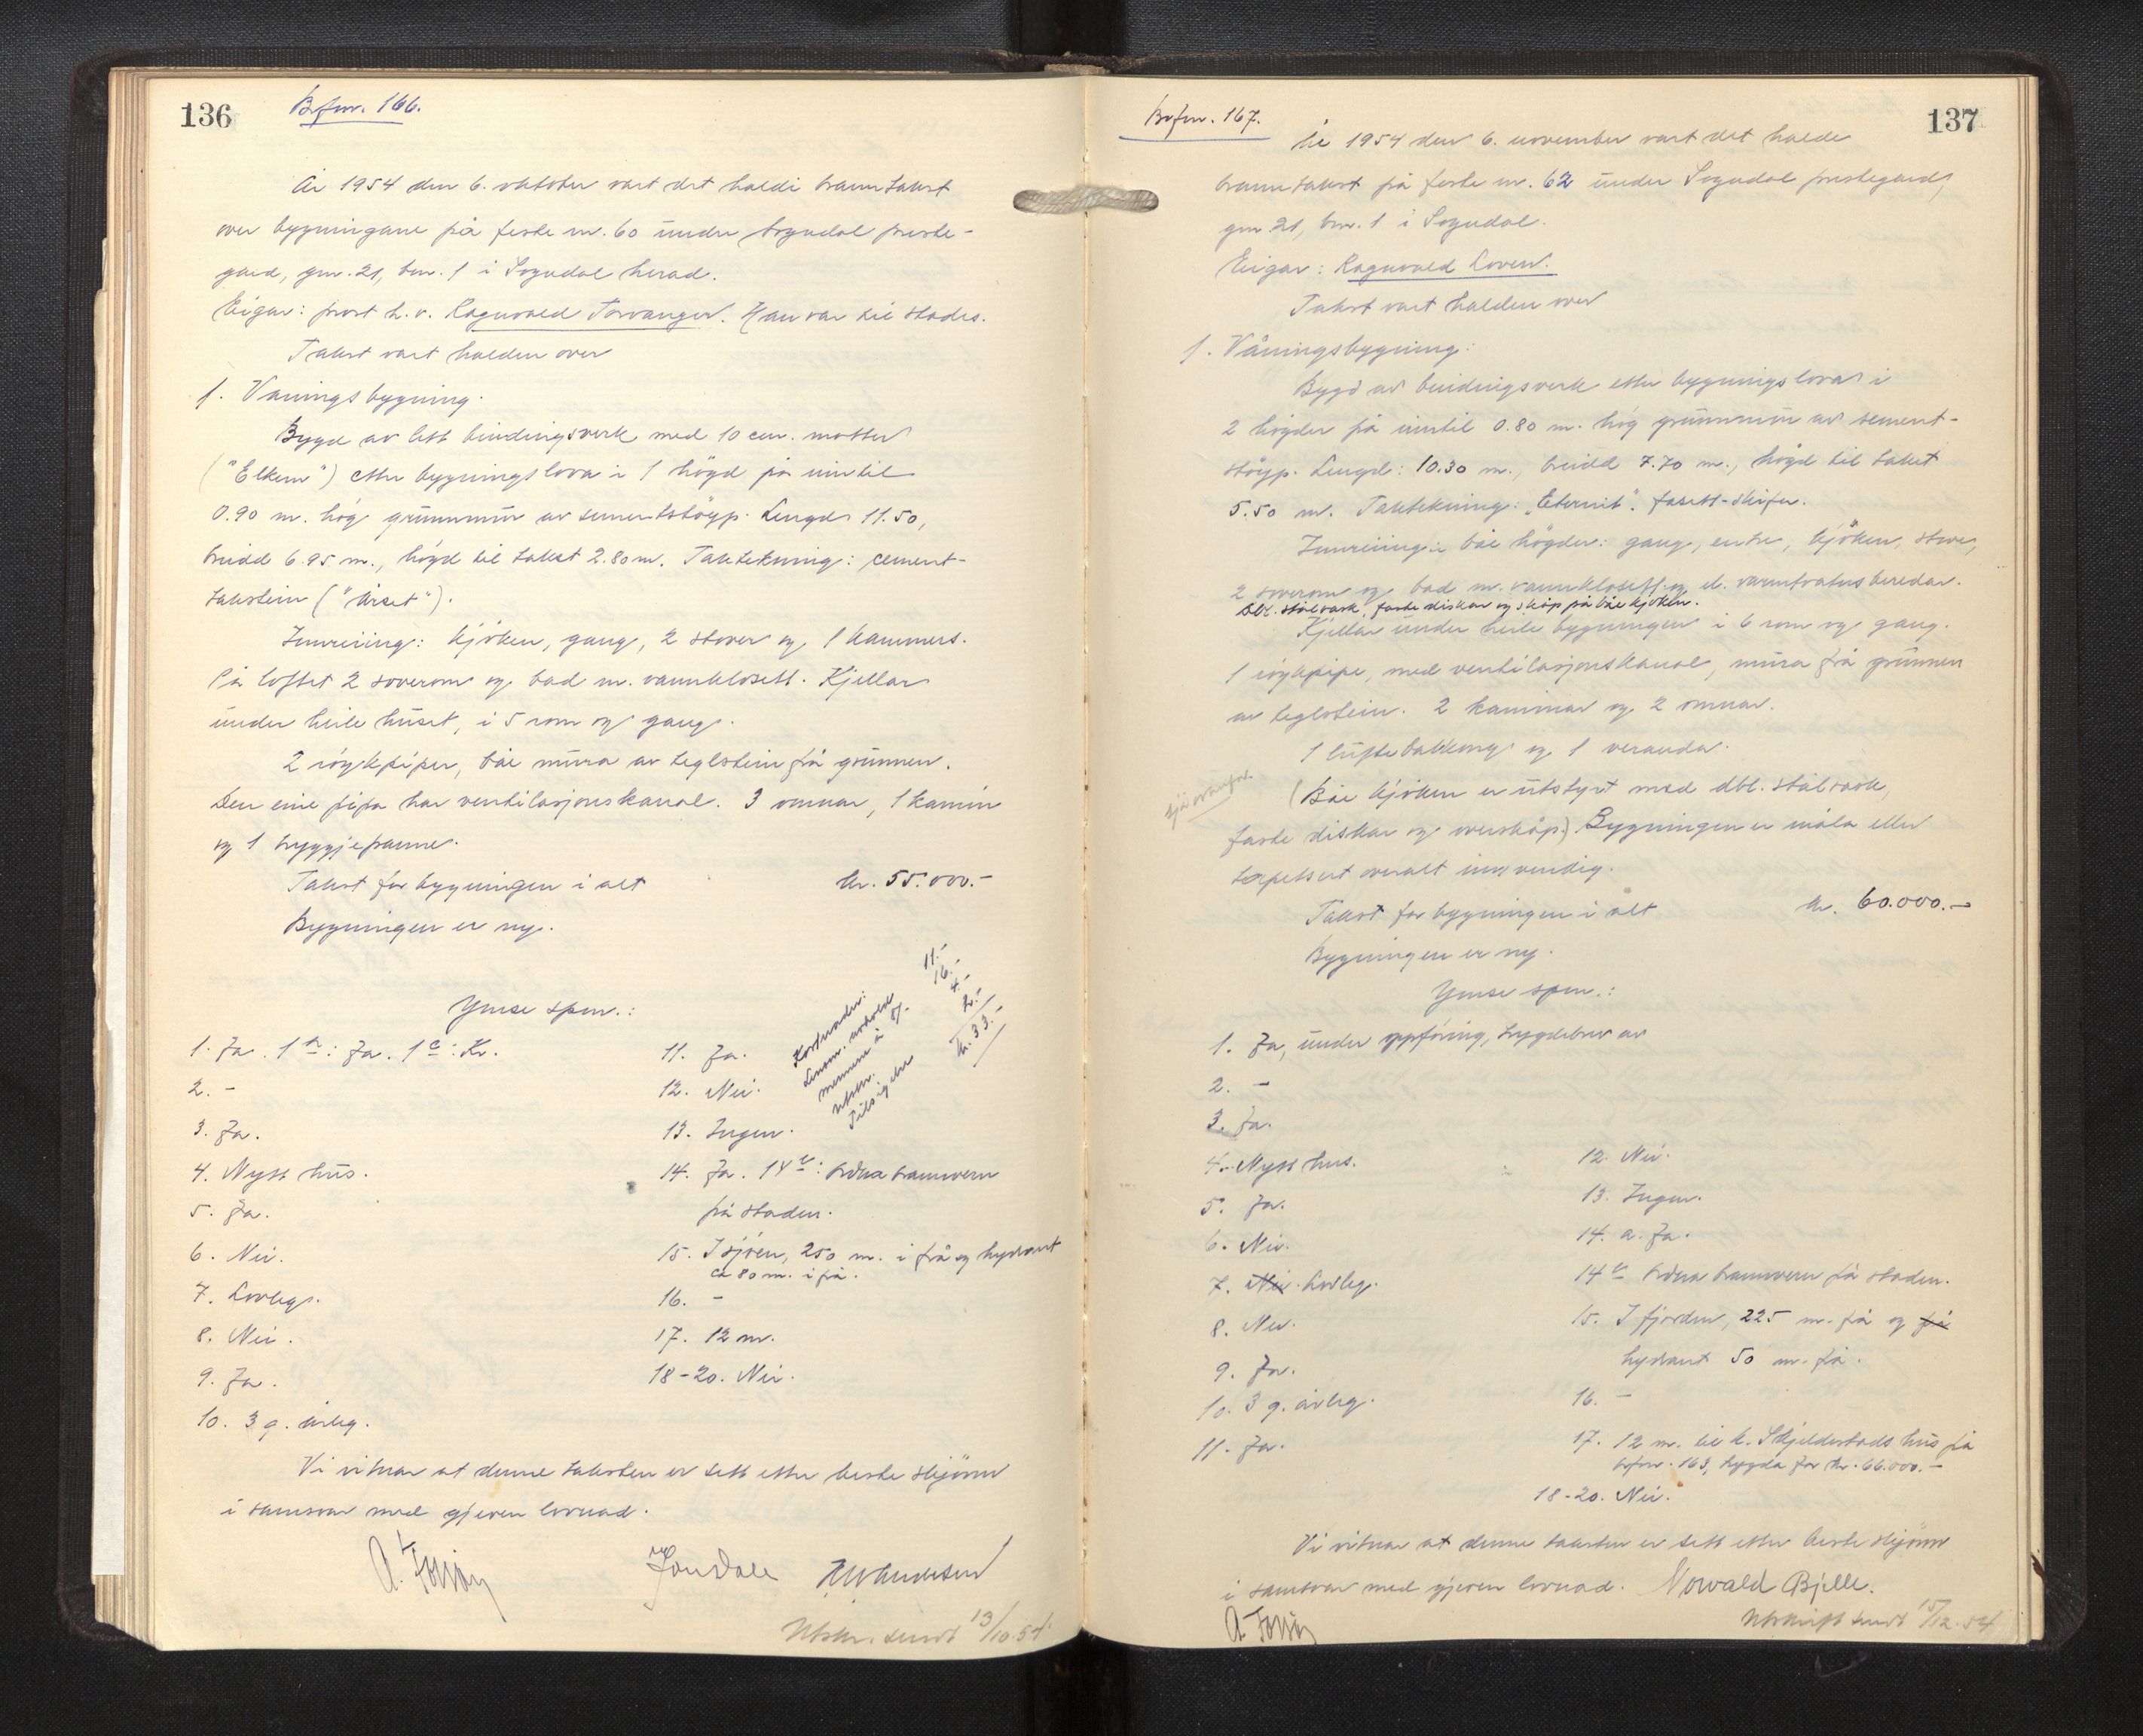 136
Brfnr. 166.
År 1954 den 6. oktober vart det haldi branntakst
over bygningane på feste nr. 60 under Sogndal preste-
gard, gnr. 21, bnr. 1 i Sogndal herad.
Eigar: prost h. v. Ragnvald Torvanger. Han var til stades.
Takst vart halden over
1. Våningsbygning.
Bygd av lett bindingsverk med 10 cm. matter
("Elkem") etter bygningslova i 1 högd på inntil
0.90 m. hög grunnmur av sementstöyp. Lengd 11.50,
breidd 6.95 m., högd til taket 2.80 m. Taktekning: cement-
takstein ("Årset").
Innreiing: kjöken, gang, 2 stover og 1 kammers.
På loftet 2 soverom og bad m. vannklosett. Kjellar
under heile huset, i 5 rom og gang.
2 röykpiper, båe mura av teglstein frå grunnen.
Den eine pipa har ventilasjonskanal. 3 omnar, 1 kamin
og 1 bryggjepanne.
Takst for bygningen i alt kr. 55.000.-
Bygningen er ny.
Ymse spm.:
1. Ja. 1 b: Ja. 1 c: Kr.
2. -
3. Ja.
4. Nytt hus.
5. Ja.
6. Nei.
7. Lovleg.
8. Nei.
9. Ja.
10. 3 g. årleg.
11. Ja.
12. Nei.
13. Ingen.
14. Ja. 14 b: Ordna brannvern
på staden.
15. I sjöen, 250 m. ifrå og hydrant
ca 80 m. ifrå.
16. -
17. 12 m.
18-20. Nei.
Kostnader: 11.-
Lensm. 16.-
mennene à 8/- 4.-
Utskr. 2.-
kr. 33.-
Vi vitnar at denne taksten er sett etter beste skjönn
i samsvar med gjeven lovnad.
Utskr. sendt 13/10.54.
137
Brfnr. 167.
År 1954 den 6. november vart det halde
branntakst på feste nr. 62 under Sogndal prestegard,
gnr. 21, bnr. 1 i Sogndal.
Eigar: Ragnvald Loven.
Takst vart halden over
1. Våningsbygning:
Bygd av bindingsverk etter bygningslova i
2 högder på inntil 0.80 m. hög grunnmur av sement-
stöyp. Lengd: 10.30 m., breidd 7.70 m., högd til taket
5.50 m. Taktekning: "Eternit" fasett-skifer.
Innreiing i båe högder: gang, entre, kjöken, stove,
2 soverom og bad m. vannklosett og el. varmtvatnsberedar.
Dbl. stålvask, faste diskar og skåp på båe kjöken.
Kjellar under heile bygningen i 6 rom og gang.
1 röykpipe, med ventilasjonskanal, mura frå grunnen
av teglstein. 2 kaminar og 2 omnar.
1 luftebalkong og 1 veranda.
sjå ovanfor.
(Båe kjöken er utstyrt med dbl. stålvask,
faste diskar og overskåp.) Bygningen er måla eller
tapetsert overalt innvendig.
Takst for bygningen i alt kr. 60.000.-
Bygningen er ny.
Ymse spm.:
1. Ja, under oppföring, trygdebrev av
2. -
3. Ja.
4. Nytt hus.
5. Ja.
6. Nei.
7. Nei. Lovleg.
8. Nei.
9. Ja.
10. 3 g. årleg.
11. Ja.
12. Nei.
13. Ingen.
14. a. Ja.
14 b Ordna brannvern på staden.
15. I fjorden, 225 m. frå og frå
hydrant 50 m. frå.
16. -
17. 12 m. til K. Skjeldestads hus på
brfnr. 163, trygda for kr. 66.000.-
18-20. Nei.
Vi vitnar at denne taksten er sett etter beste skjönn
i samsvar med gjeven lovnad. Norvald Bjelle.
Utskrift sendt 15/12.54